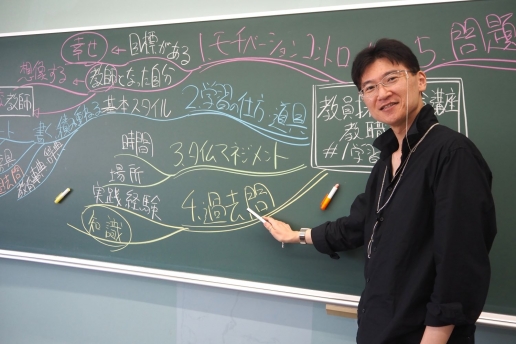 幸せ ← 目標がある
1.モチベーションコントロ
5.問題
想像する ← 教師となった自分
教師
基本スタイル
2.学習の仕方、道具
教員
講座
教職
#1学習
時間
場所
3.タイムマネジメント
実践経験
知識
4.過去問